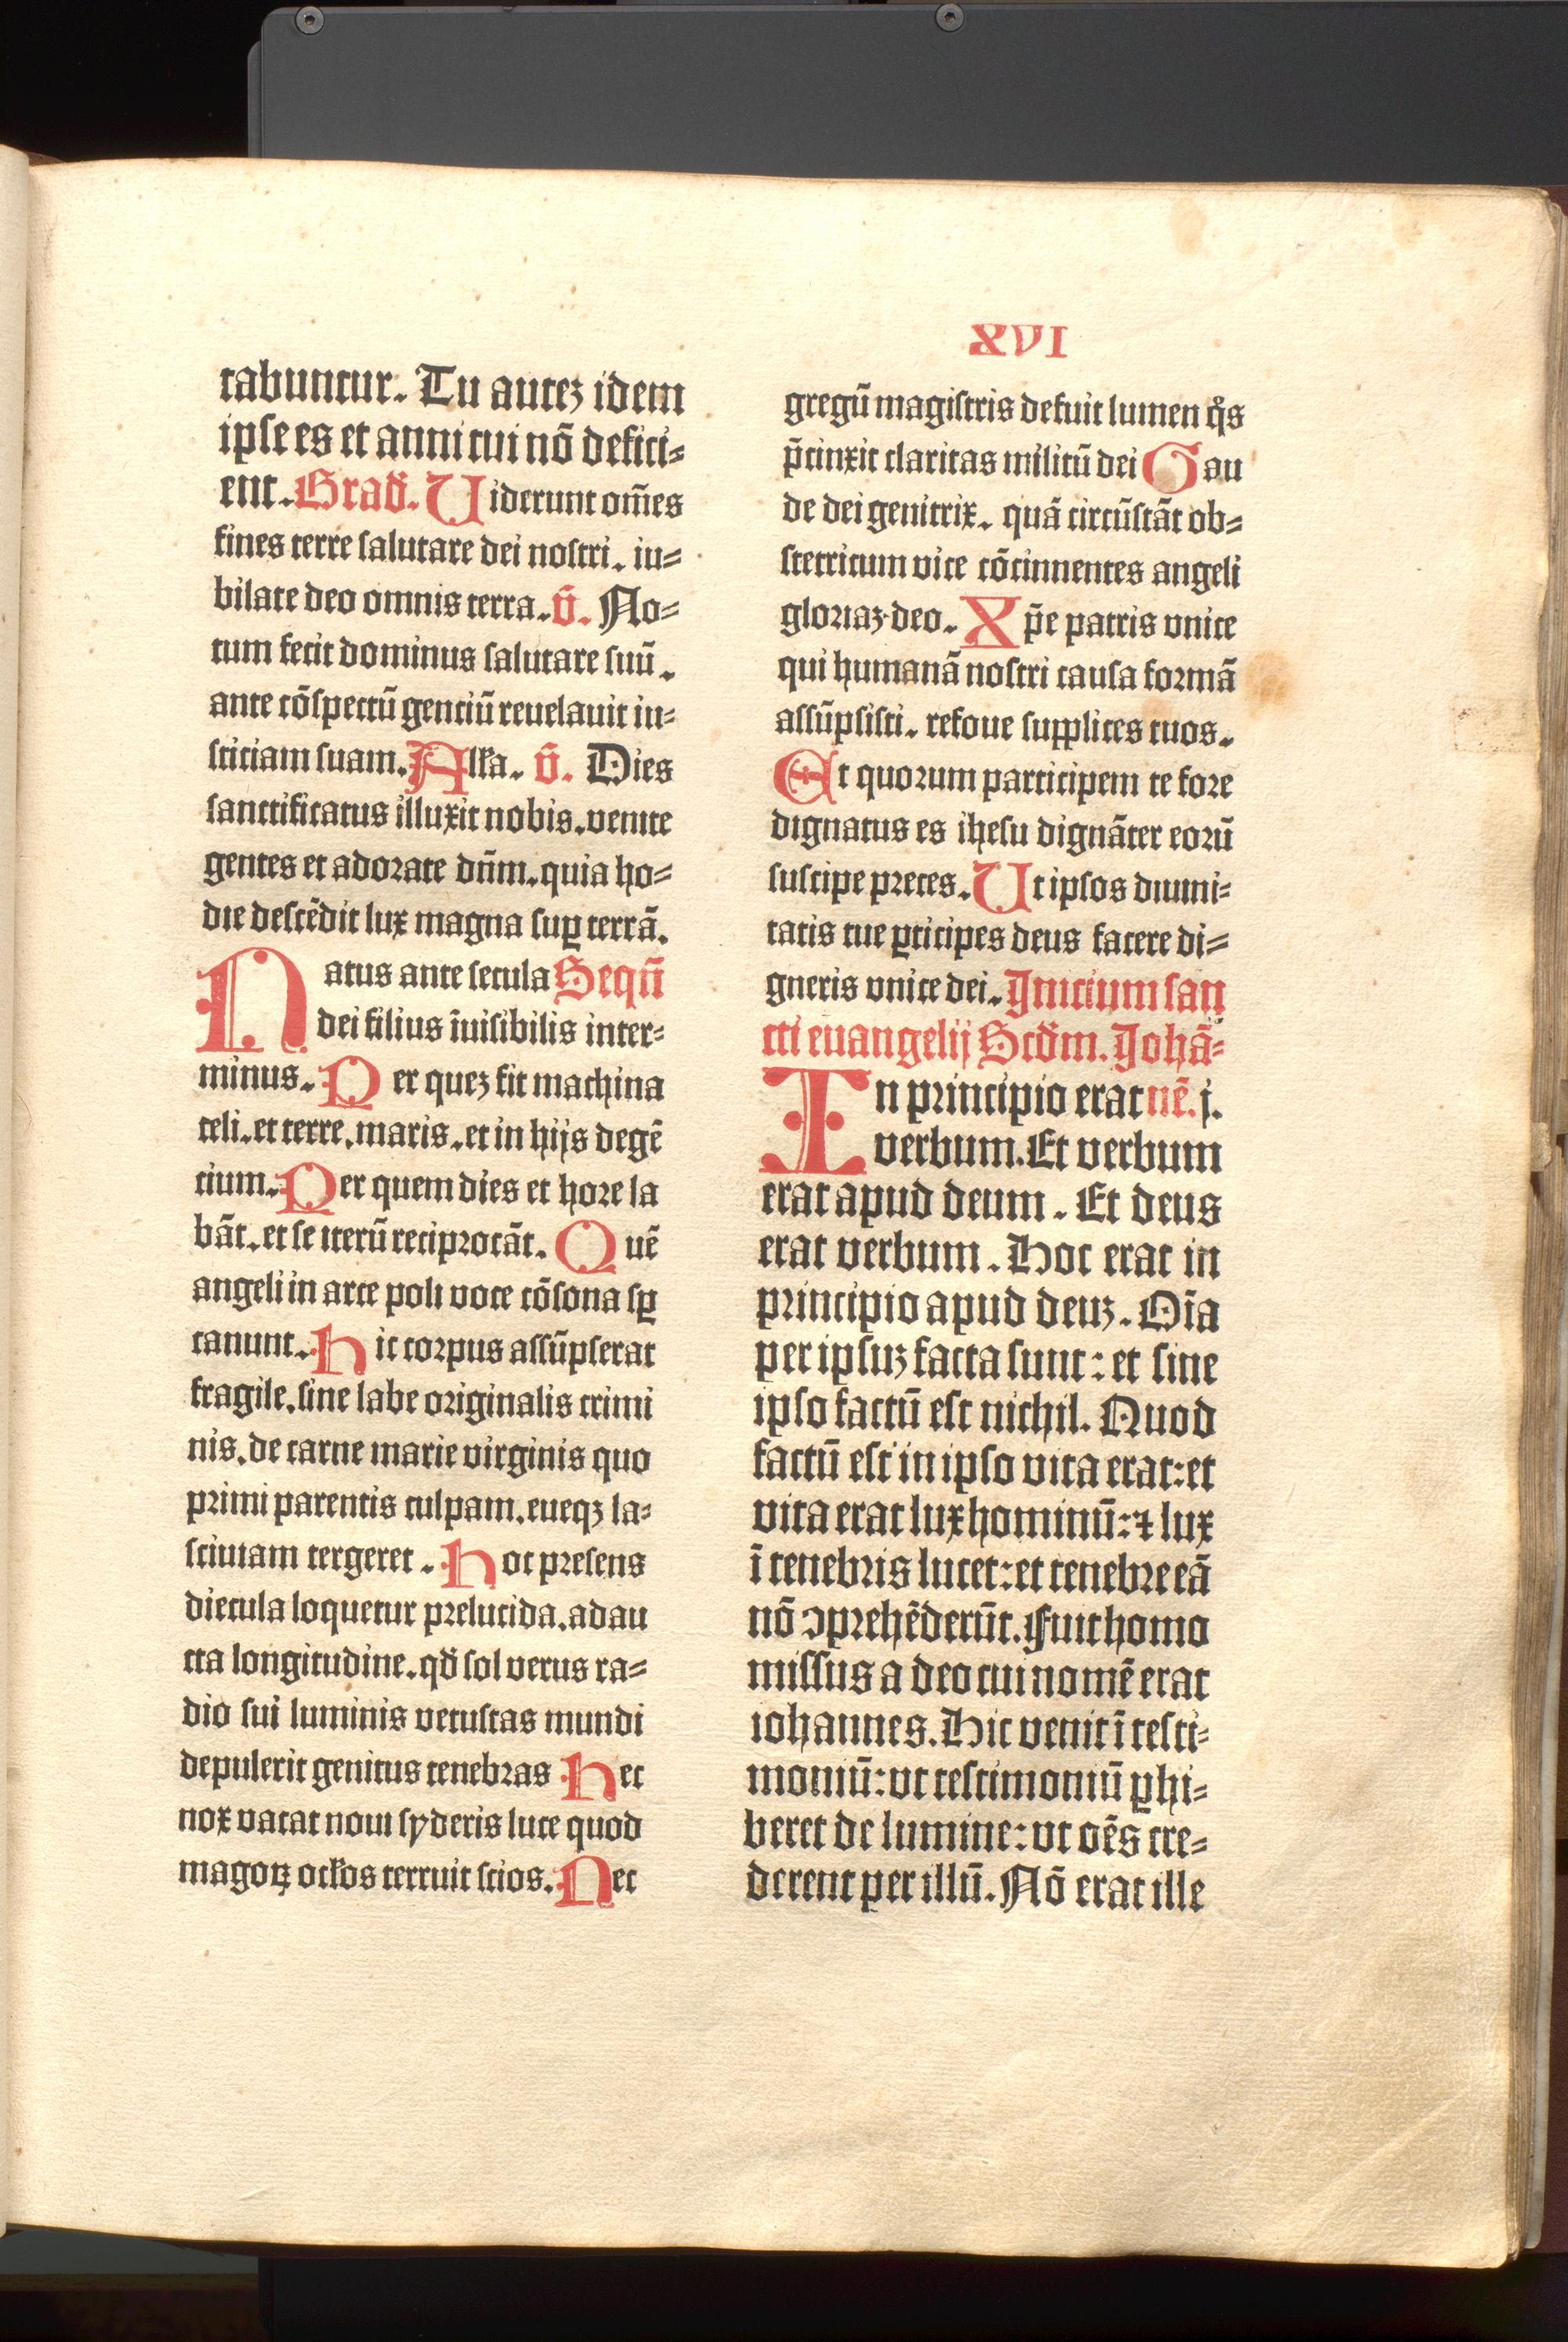 XVI
tabuntur. Tu autez idem
ipse es et anni tui nō defici=
ent. Grad̄. Uiderunt om̄es
fines terre salutare dei nostri. iu=
bilate deo omnis terra. v̄. No=
tum fecit dominus salutare suū.
ante cōspectū gentiū reuelauit iu=
sticiam suam. Allꝉa. v̄. Dies
sanctificatus illuxit nobis. venite
gentes et adorate dn̄m. quia ho=
die descēdit lux magna suꝑ terrā.
Natus ante secula Sequn̄
dei filius īuisibilis inter=
minus. Per quez fit machina
celi. et terre. maris. et in hijs degē
cium. Per quem dies et hore la
bāt. et se iterū reciprocāt. Quē
angeli in arce poli voce cōsona sꝑ
canunt. Hic corpus assūpserat
fragile. sine labe originalis crimi
nis. de carne marie virginis quo
primi parentis culpam. eueqꝫ la=
sciuiam tergeret. Hoc presens
diecula loquetur prelucida. adau
cta longitudine. qd̄ sol verus ra=
dio sui luminis vetustas mundi
depulerit genitus tenebras Hec
nox vacat noui syderis luce quod
magoꝝ ocꝉos terruit scios. Nec
gregū magistris defuit lumen qͦs
p̄strinxit claritas militū dei Gau
de dei genitrix. quā circūstāt ob=
stetricum vice cōcinnentes angeli
gloriaz deo. Xp̄e patris vnice
qui humanā nostri causa formā
assūpsisti. refoue supplices tuos.
Et quorum participem te fore
dignatus es ihesu dignāter eorū
suscipe preces. Ut ipsos diuini=
tatis tue ꝑticipes deus facere di=
gneris vnice dei. Inicium san
cti euangelij Scd̄m. Johā=
In principio erat nē. j.
verbum. Et verbum
erat apud deum. Et deus
erat verbum. Hoc erat in
principio apud deuz. Oīa
per ipsuz facta sunt: et sine
ipso factū est nichil. Quod
factū est in ipso vita erat: et
vita erat lux hominū: ⁊ lux
ī tenebris lucet: et tenebre eā
nō ↄprehēderūt. Fuit homo
missus a deo cui nomē erat
iohannes. Hic venit ī testi=
moniū: vt testimoniū ꝑhi=
beret de lumine: vt oēs cre=
derent per illū. Nō erat ille